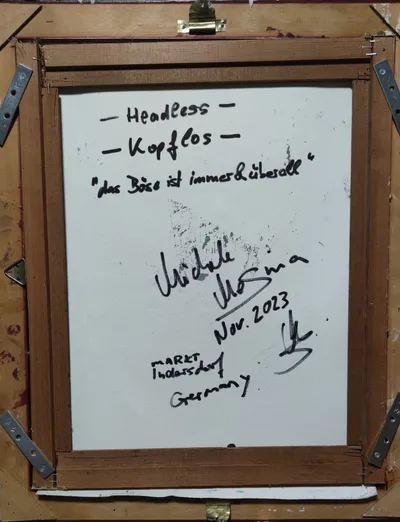 - Headless -
- Kopflos -
"das Böse ist immer & überall"
Nov. 2023
MARKT
Indersdorf
Germany